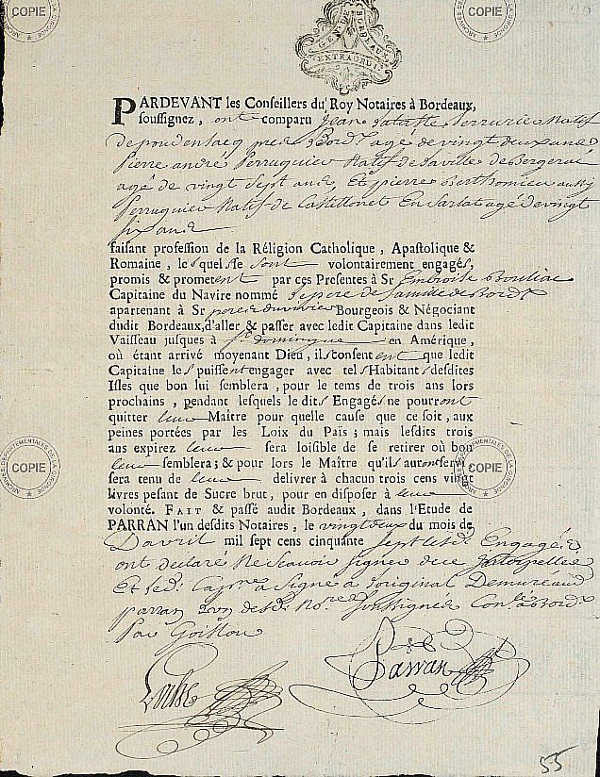 COPIE
COPIE
GEN. DE BORDEAUX
EXTRAORD
PARDEVANT les Conseillers du Roy Notaires à Bordeaux,
soussignez, ont comparu Jean natif
agé de vingt deux ans
Pierre andré Perruquier Natif de la ville de Bergerac
agé de vingt sept ans, Et pierre Berthomieu aussy
Perruquier Natif de Castillonet En Sarlat agé de vingt
six ans
faisant profession de la Réligion Catholique, Apastolique &
Romaine, lesquels se sont volontairement engagés,
promis & prometent par ces Presentes à Sr Embroise Bouliac
Capitaine du Navire nommé Le pere de famille de Bordx
apartenant à Sr Bourgeois & Négociant
dudit Bordeaux, d'aller & passer avec ledit Capitaine dans ledit
Vaisseau jusques à St domingue en Amérique,
où étant arrivé moyenant Dieu, ils consentent que ledit
Capitaine les puissent engager avec tels Habitants desdites
Isles que bon lui semblera, pour le tems de trois ans lors
prochains, pendant lesquels le dits Engagés ne pourront
quitter leur Maître pour quelle cause que ce soit, aux
peines portées par les Loix du Païs; mais lesdits trois
ans expirez leur sera loisible de se retirer où bon
leur semblera; & pour lors le Maître qu'ils auront servi
sera tenu de leur delivrer à chacun trois cens vingt
livres pesant de Sucre brut, pour en disposer à leur
volonté. FAIT & passé audit Bordeaux, dans l'Etude de
PARRAN l'un desdits Notaires, le vingt deux du mois de
Davril mil sept cens cinquante sept lesd. Engagés
ont declaré Ne Scavoir signer de ce Interpellés
Et led. Capne a Signé a l'original Demeuré au
parran lun desd. Nores Soussignés Conlé a Bordx
Par Goislon
Parran
55
COPIE
COPIE
ARCHIVES DEPARTEMENTALES DE LA GIRONDE